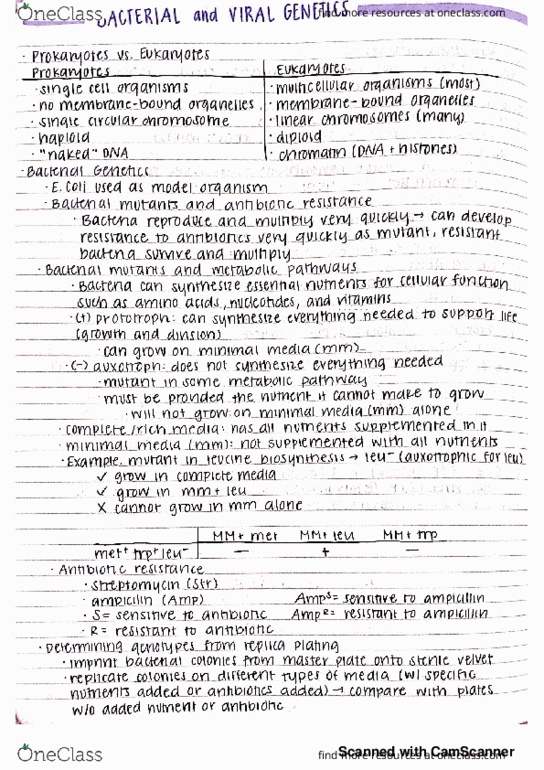 OneClass
BACTERIAL and VIRAL GENETICS
find more resources at oneclass.com
· Prokaryotes vs. Eukaryotes
Prokaryotes Eukaryotes
· single cell organisms · multicellular organisms (most)
· no membrane-bound organelles · membrane-bound organelles
· single circular chromosome · linear chromosomes (many)
· haploid · diploid
· "naked" DNA · chromatin (DNA + histones)
· Bacterial Genetics
· E. Coli used as model organism
· Bacterial mutants and antibiotic resistance
· Bacteria reproduce and multiply very quickly → can develop
resistance to antibiotics very quickly as mutant, resistant
bacteria survive and multiply
· Bacterial mutants and metabolic pathways
· Bacteria can synthesize essential nutrients for cellular function
such as amino acids, nucleotides, and vitamins
· (+) prototroph: can synthesize everything needed to support life
(growth and division)
· can grow on minimal media (mm)
· (-) auxotroph: does not synthesize everything needed
· mutant in some metabolic pathway
· must be provided the nutrient it cannot make to grow
· will not grow on minimal media (mm) alone
· complete/rich media: has all nutrients supplemented in it
· minimal media (mm): not supplemented with all nutrients
· Example: mutant in leucine biosynthesis → leu⁻ (auxotrophic for leu)
✓ grow in complete media
✓ grow in mm + leu
X cannot grow in mm alone
MM + met MM + leu MM + trp
met⁺ trp⁺ leu⁻ — + —
· Antibiotic resistance
· streptomycin (Str)
· ampicillin (Amp) Ampˢ = sensitive to ampicillin
· S = sensitive to antibiotic Ampᴿ = resistant to ampicillin
· R = resistant to antibiotic
· Determining genotypes from replica plating
· imprint bacterial colonies from master plate onto sterile velvet
· replicate colonies on different types of media (w/ specific
nutrients added or antibiotics added) → compare with plates
w/o added nutrient or antibiotic
OneClass
find more resources at oneclass.com
Scanned with CamScanner